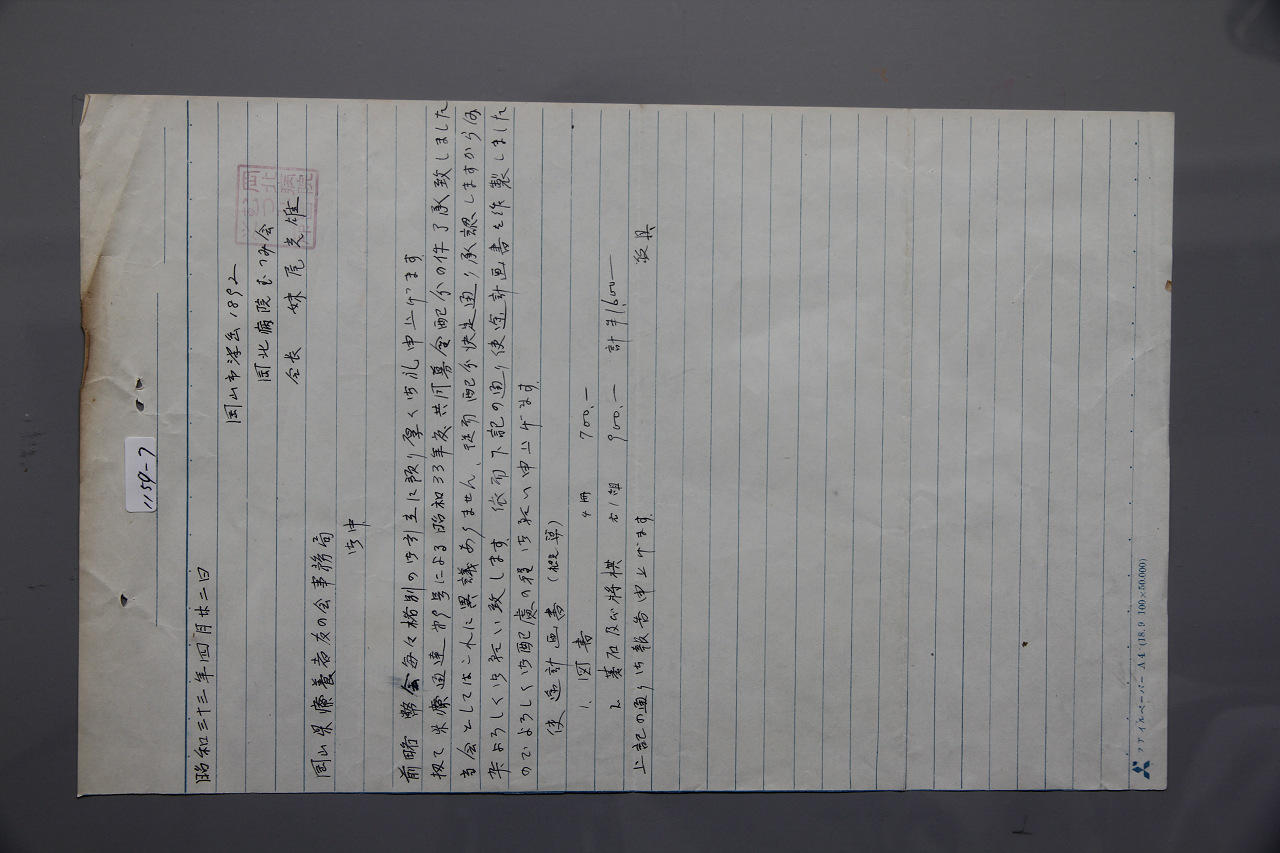 1154-7
昭和三十三年四月廿二日
岡山市津島1892
岡北病院むつみ会
会長 妹尾克雄
岡山県療養者友の会事務局
御中
前略 弊会毎々格別の御引立に預り厚く御礼申上げます
扨て県療通達 号による昭和33年度共同募金配分の件了承致しました
当会としてはこれに異議ありません、従而配分決定通り承認しますから何
卒よろしく御願い致します。依而下記の通り使途計画書を作製しました
のでよろしく御配慮の程御願い申上げます。
使途計画書(概算)
1. 図書 4冊 700.—
2. 碁石及び将棋 各1組 900.— 計¥1600—
上記の通り御報告申上げます。
敬具
ファイルペーパー A4 (18.9. 100×50,000)